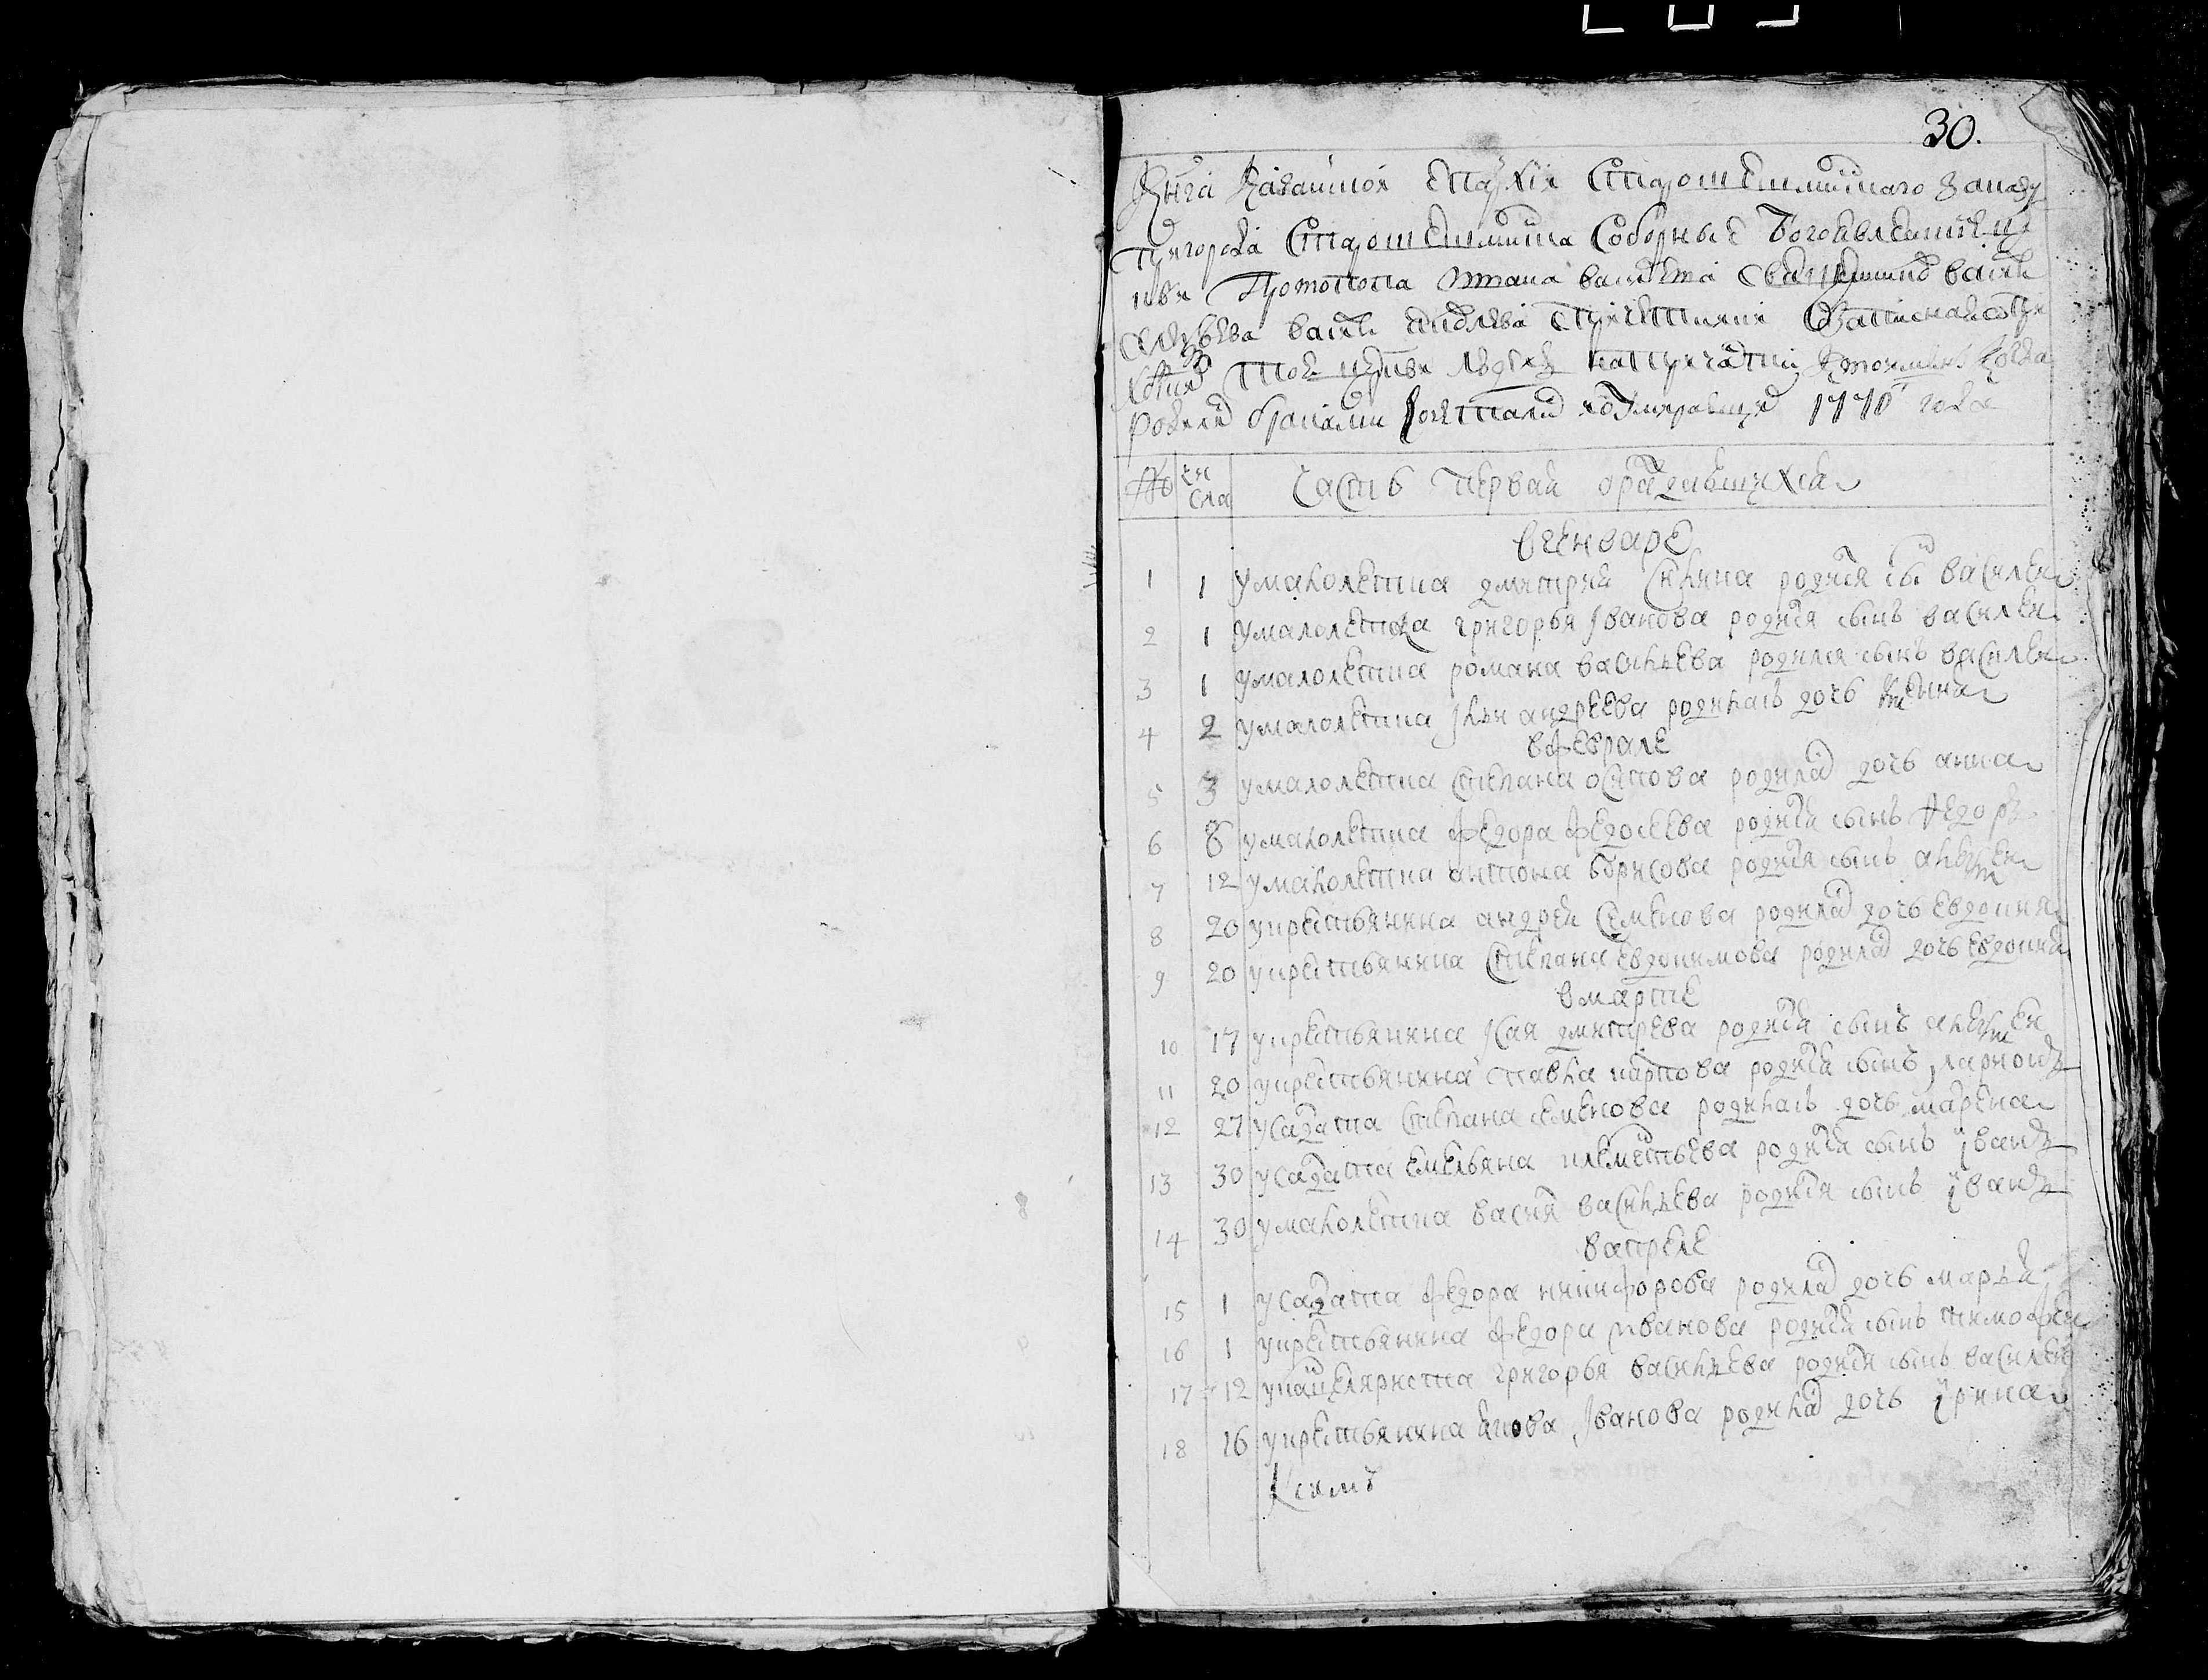 30.
Книга Казанской епархии Старошешминского заказу
пригорода Старошешминска Соборные Богоявленские
церкви протопопа Ивана священников Василья
Василья
той церкви людех кто именъ когда
родился браками сочетался и умиравших 1770 года
№ чи сла Часть первая о родившихся
в генваре
1 1 у малолетка дмитрия родился сынъ василеи
2 1 у малолетка григорья Iванова родился сынъ василеи
3 1 у малолетка романа васильева родился сынъ василеи
4 2 у малолетка Iльи андреева родилась дочь
в феврале
5 3 у малолетка степана осипова родилась дочь анна
6 8 у малолетка федора федосеева родился сынъ федоръ
7 12 у малолетка антона борисова родился сынъ алеѯеи
8 20 у крестьянина андрея семенова родилась дочь евдокия
9 20 у крестьянина степана евдокимова родилась дочь евдокия
в марте
10 17 у крестьянина дмитрева родился сынъ алеѯеи
11 20 у крестьянина павла карпова родился сынъ ларионъ
12 27 у салдата степана семенова родилась дочь марена
13 30 у салдата емельяна клементьева родился сынъ iванъ
14 30 у малолетка василя васильева родился сынъ iванъ
в апреле
15 1 у салдата федора никифорова родилась дочь марья
16 1 у крестьянина федора иванова родился сынъ тимофеи
17 12 у канцеляриста григорья васильева родился сынъ василеи
18 16 у крестьянина якова Iванова родилась дочь iрина
К симъ